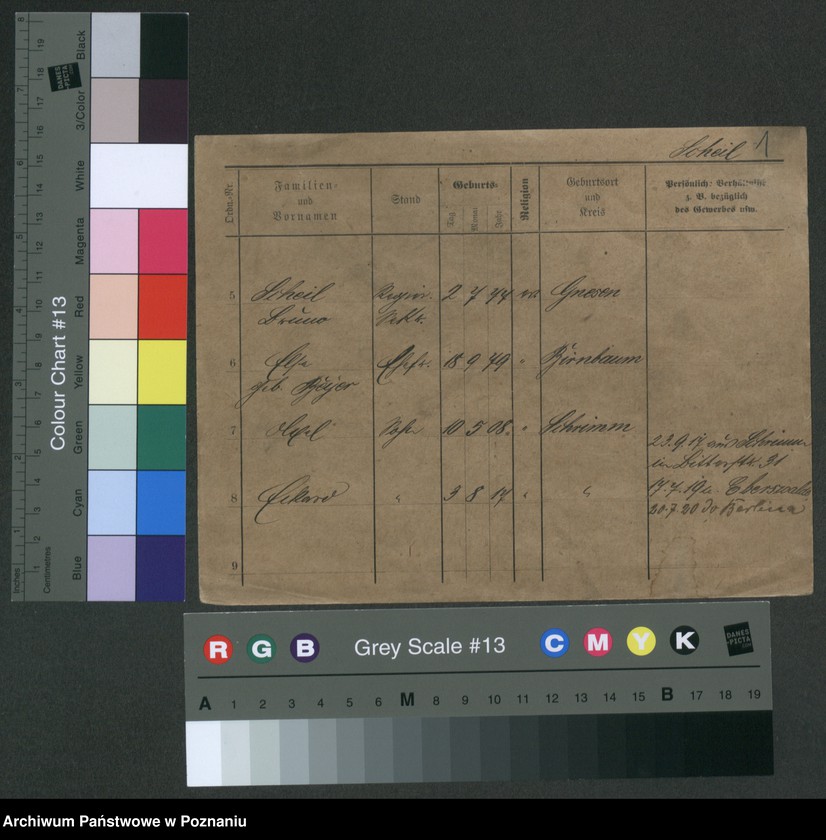 Scheil 1
Ordn.-Nr.
Familien-
und
Vornamen
Stand
Geburts-
Tag
Monat
Jahr
Religion
Geburtsort
und
Kreis
Persönliche Verhältnisse
z. B. bezüglich
des Gewerbes usw.
5 Scheil 2 7 77 ev. Gnesen
Bruno Sekr.
6 Else Ehefr. 18 9 79 " Birnbaum
geb.
7 Axel Sohn 10 5 08. " Schrimm
23.9.17 aus Schrimm
in Ritterstr. 31
8 Eckard " 3 8 14 " "
17.7.19 n. Eberswalde
20.7.20 do Berlin
9
Colour Chart #13
Black
3/Color
White
Magenta
Red
Yellow
Green
Cyan
Blue
Inches
Centimetres
1 2 3 4 5 6 7 8
1 2 3 4 5 6 7 8 9 10 11 12 13 14 15 16 17 18 19
DANES
PICTA
R G B Grey Scale #13 C M Y K
DANES
PICTA
A 1 2 3 4 5 6 M 8 9 10 11 12 13 14 15 B 17 18 19
Archiwum Państwowe w Poznaniu